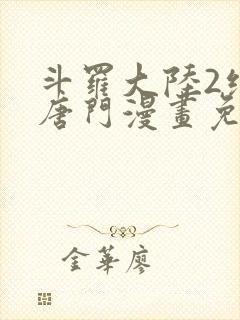 斗羅大陸2
唐門漫畫免
金華廖